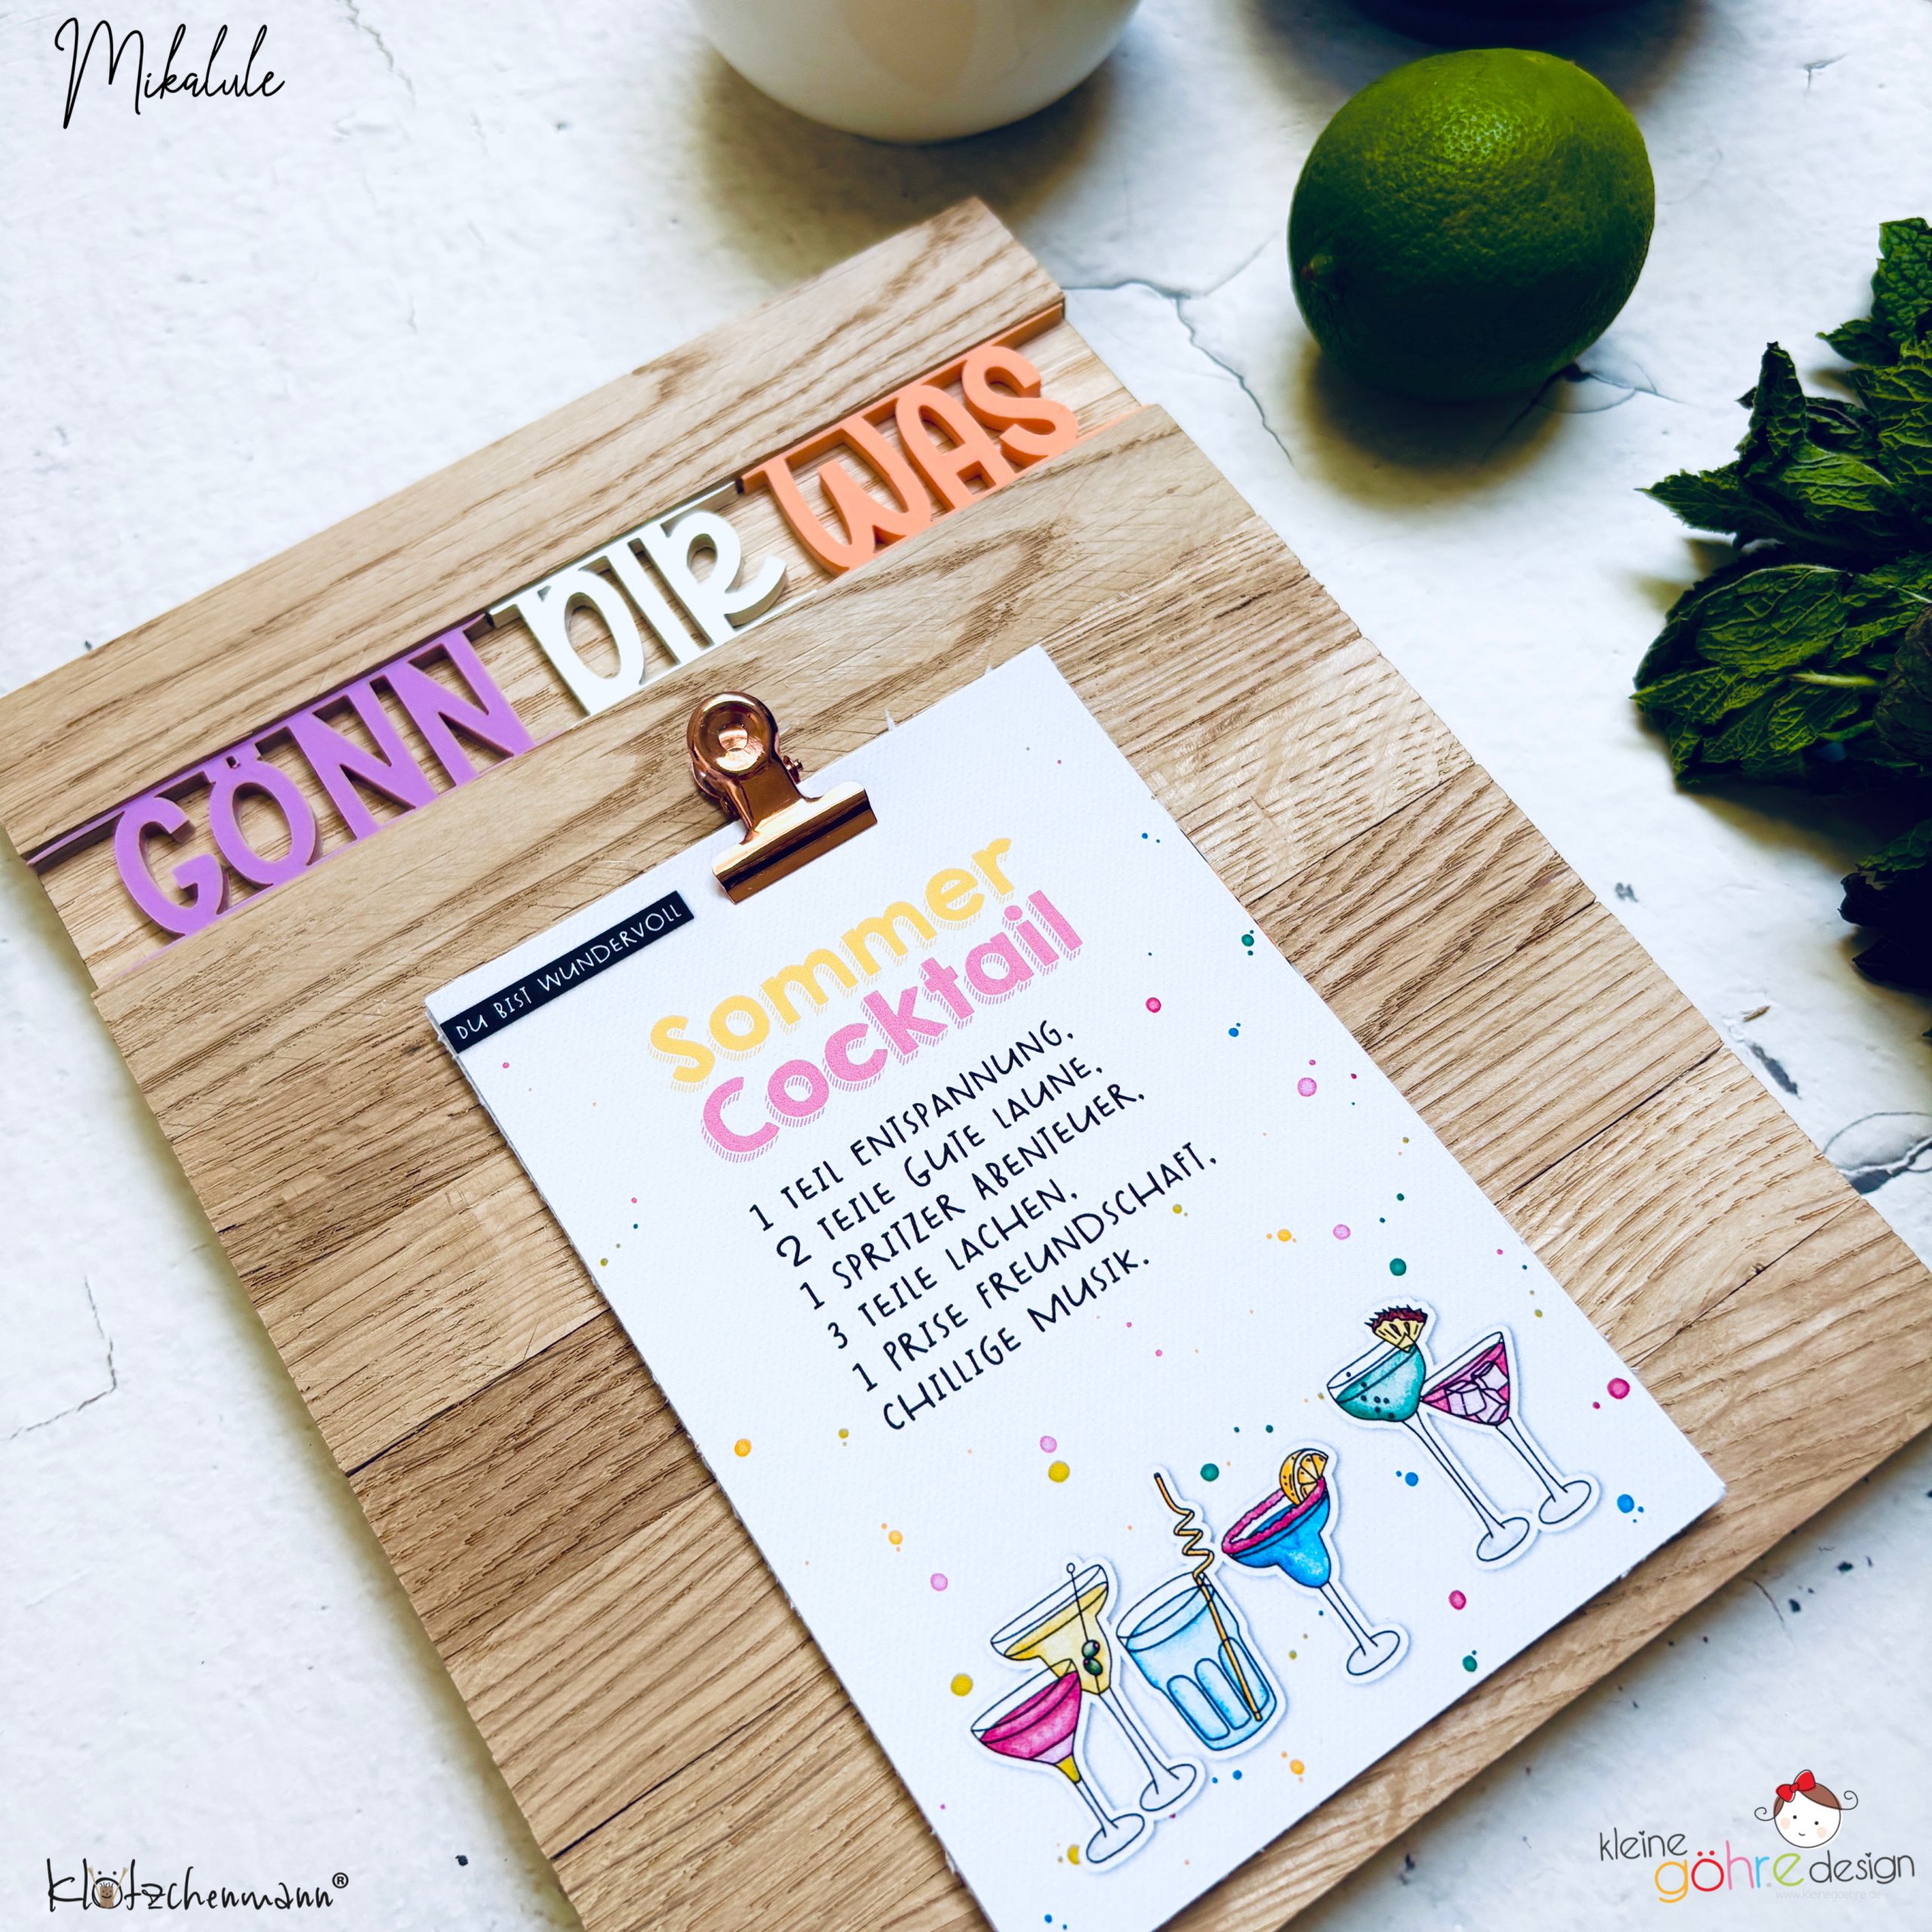 Mikalule
GÖNN DIR WAS
DU BIST WUNDERVOLL
Sommer
Cocktail
1 TEIL ENTSPANNUNG,
2 TEILE GUTE LAUNE,
1 SPRITZER ABENTEUER,
3 TEILE LACHEN,
1 PRISE FREUNDSCHAFT,
CHILLIGE MUSIK.
Klötzchenmann®
kleine
göhre design
www.kleinegoehre.de